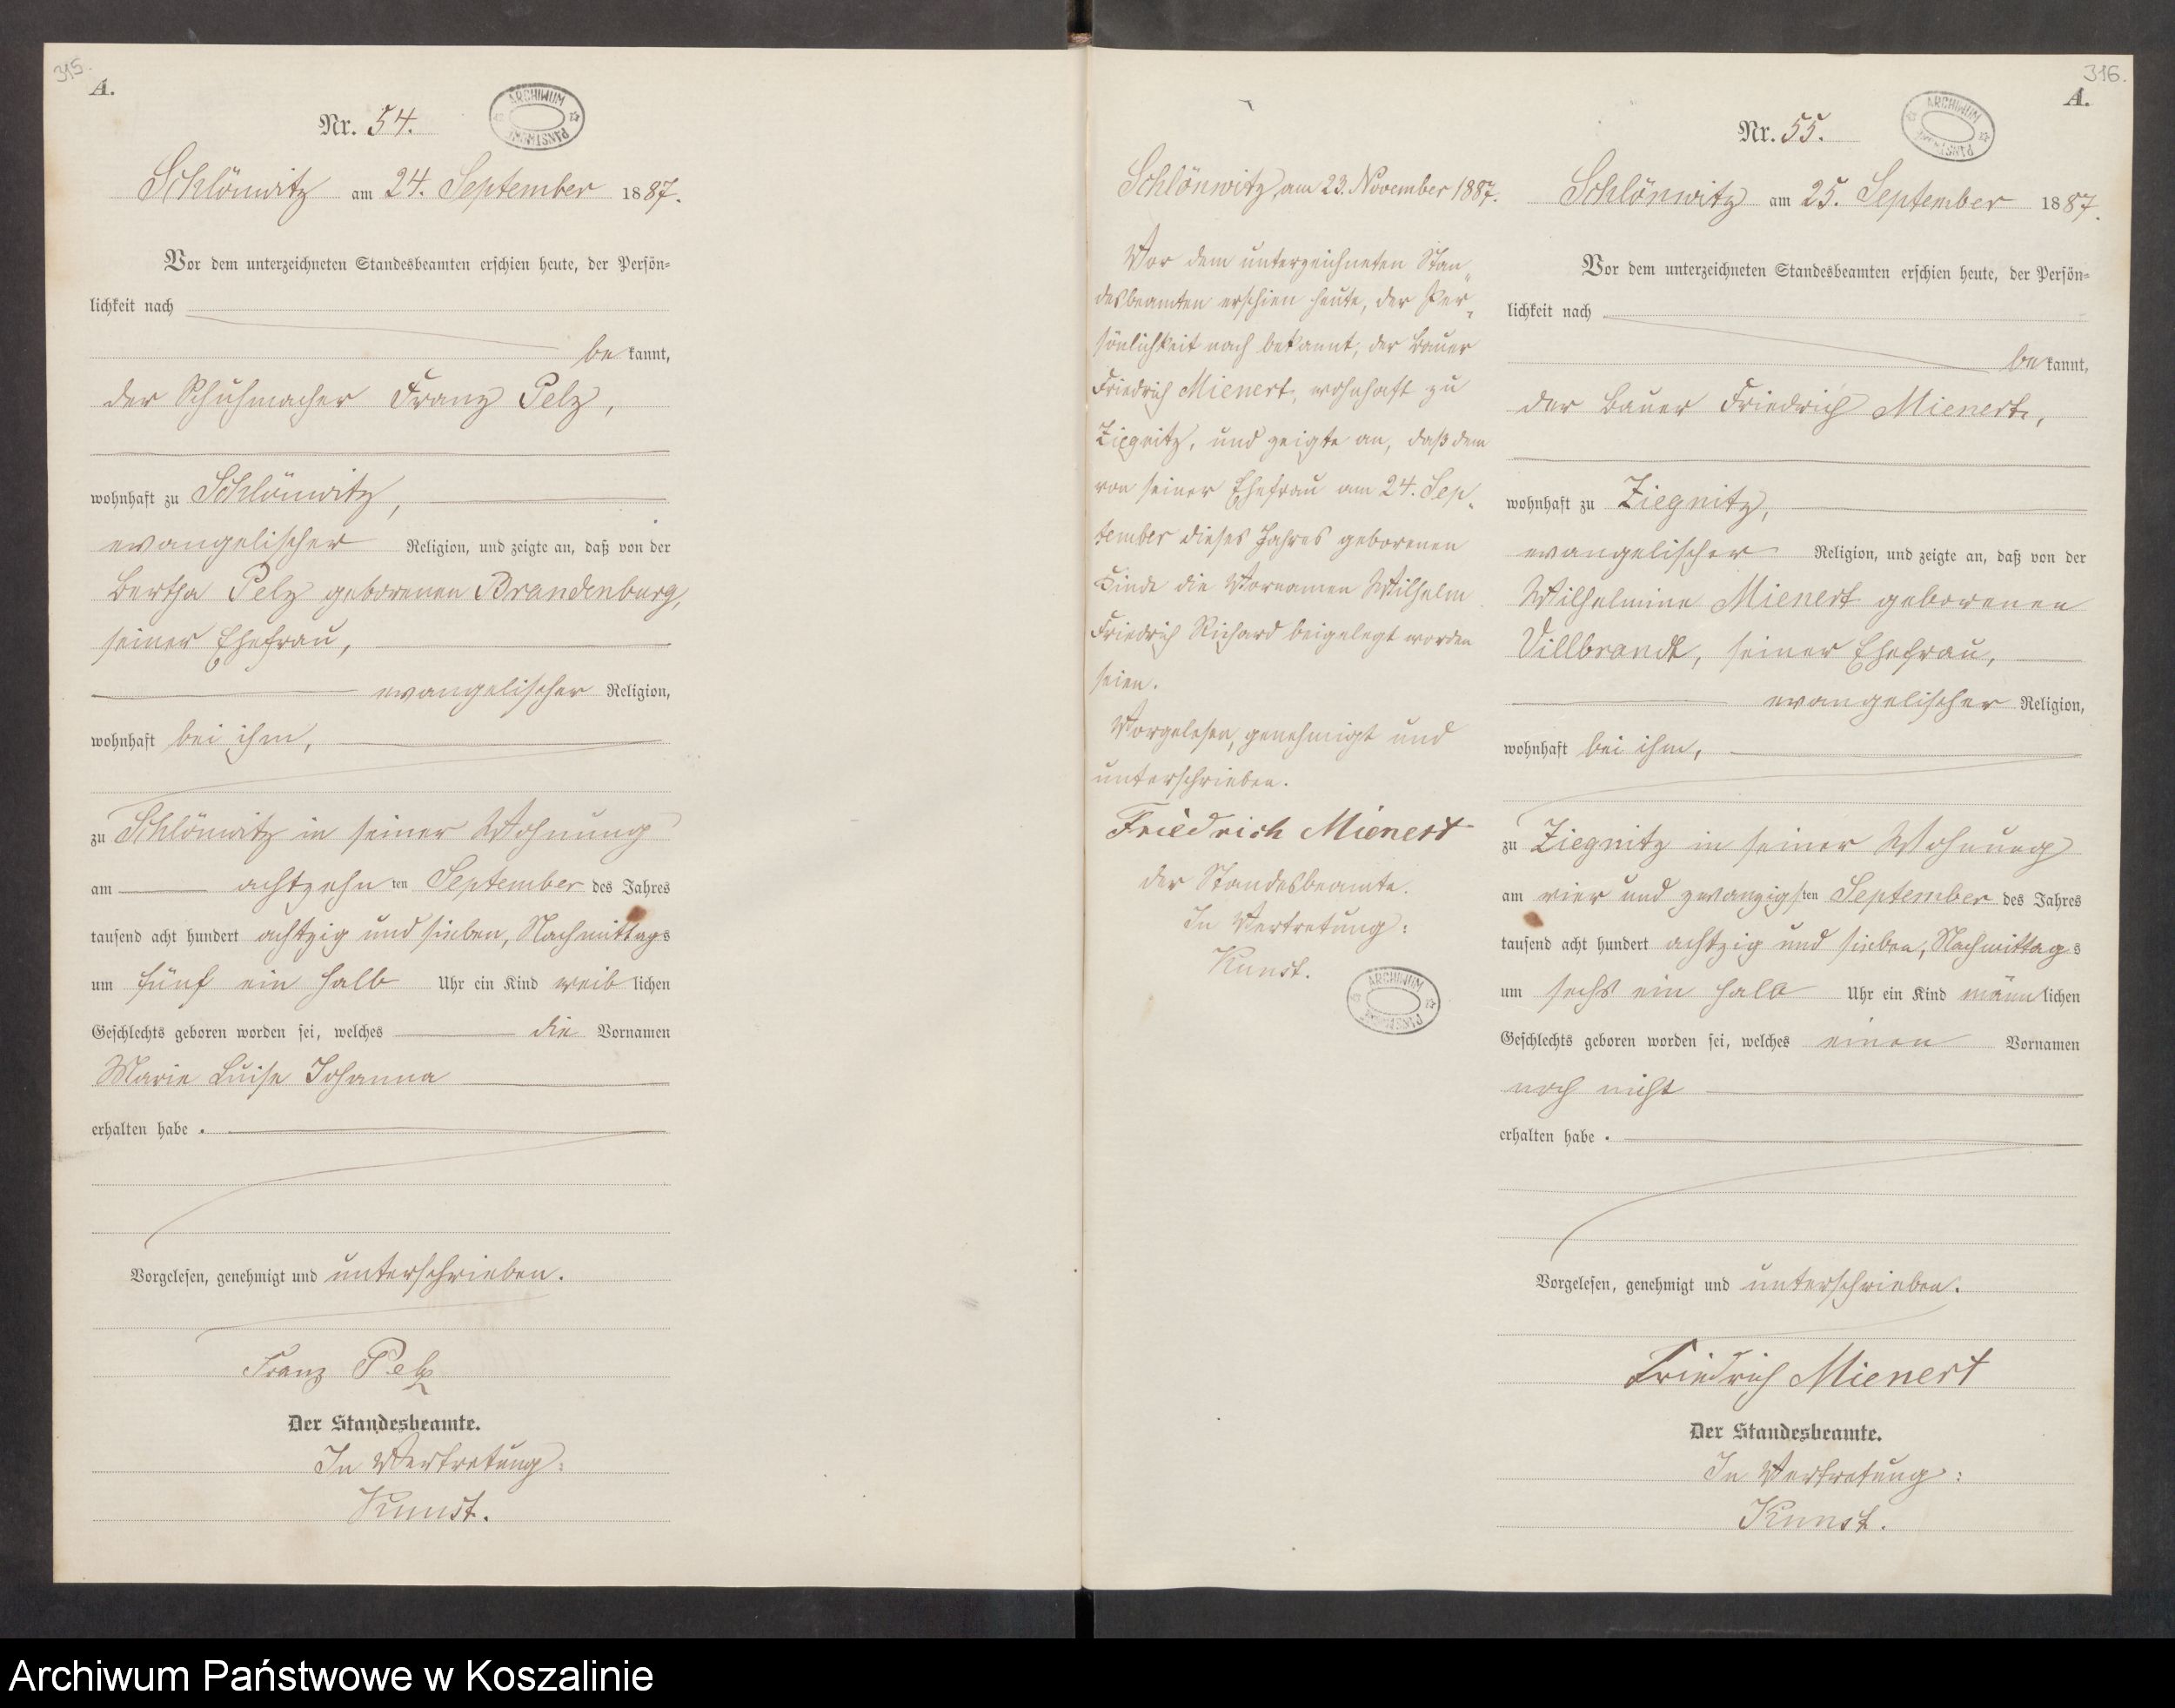 315.
A.
ARCHIWUM PAŃSTWOWE
Nr. 54.
Schlönwitz am 24. September 1887.
Vor dem unterzeichneten Standesbeamten erschien heute, der Persön-
lichkeit nach
be kannt,
der Schuhmacher Franz Pelz,
wohnhaft zu Schlönwitz,
evangelischer Religion, und zeigte an, daß von der
Bertha Pelz geborenen Brandenburg,
seiner Ehefrau,
evangelischer Religion,
wohnhaft bei ihm,
zu Schlönwitz in seiner Wohnung
am achtzehn ten September des Jahres
tausend acht hundert achtzig und sieben, Nachmittags
um fünf ein halb Uhr ein Kind weib lichen
Geschlechts geboren worden sei, welches die Vornamen
Marie Luise Johanna
erhalten habe.
Vorgelesen, genehmigt und unterschrieben.
Franz Pelz
Der Standesbeamte.
In Vertretung:
Kunst.
Schlönwitz, am 23. November 1887.
Vor dem unterzeichneten Stan-
desbeamten erschien heute, der Per-
sönlichkeit nach bekannt, der Bauer
Friedrich Mienert, wohnhaft zu
Ziegnitz, und zeigte an, daß dem
von seiner Ehefrau am 24. Sep-
tember dieses Jahres geborenen
Kinde die Vornamen Wilhelm
Friedrich Richard beigelegt worden
seien.
Vorgelesen, genehmigt und
unterschrieben.
Friedrich Mienert
der Standesbeamte.
In Vertretung:
Kunst.
ARCHIWUM PAŃSTWOWE
316.
A.
ARCHIWUM PAŃSTWOWE
Nr. 55.
Schlönwitz am 25. September 1887.
Vor dem unterzeichneten Standesbeamten erschien heute, der Persön-
lichkeit nach
be kannt,
der Bauer Friedrich Mienert,
wohnhaft zu Ziegnitz,
evangelischer Religion, und zeigte an, daß von der
Wilhelmine Mienert geborenen
Villbrandt, seiner Ehefrau,
evangelischer Religion,
wohnhaft bei ihm,
zu Ziegnitz in seiner Wohnung
am vier und zwanzigsten September des Jahres
tausend acht hundert achtzig und sieben, Nachmittags
um sechs ein halb Uhr ein Kind männ lichen
Geschlechts geboren worden sei, welches einen Vornamen
noch nicht
erhalten habe.
Vorgelesen, genehmigt und unterschrieben.
Friedrich Mienert
Der Standesbeamte.
In Vertretung:
Kunst.
Archiwum Państwowe w Koszalinie